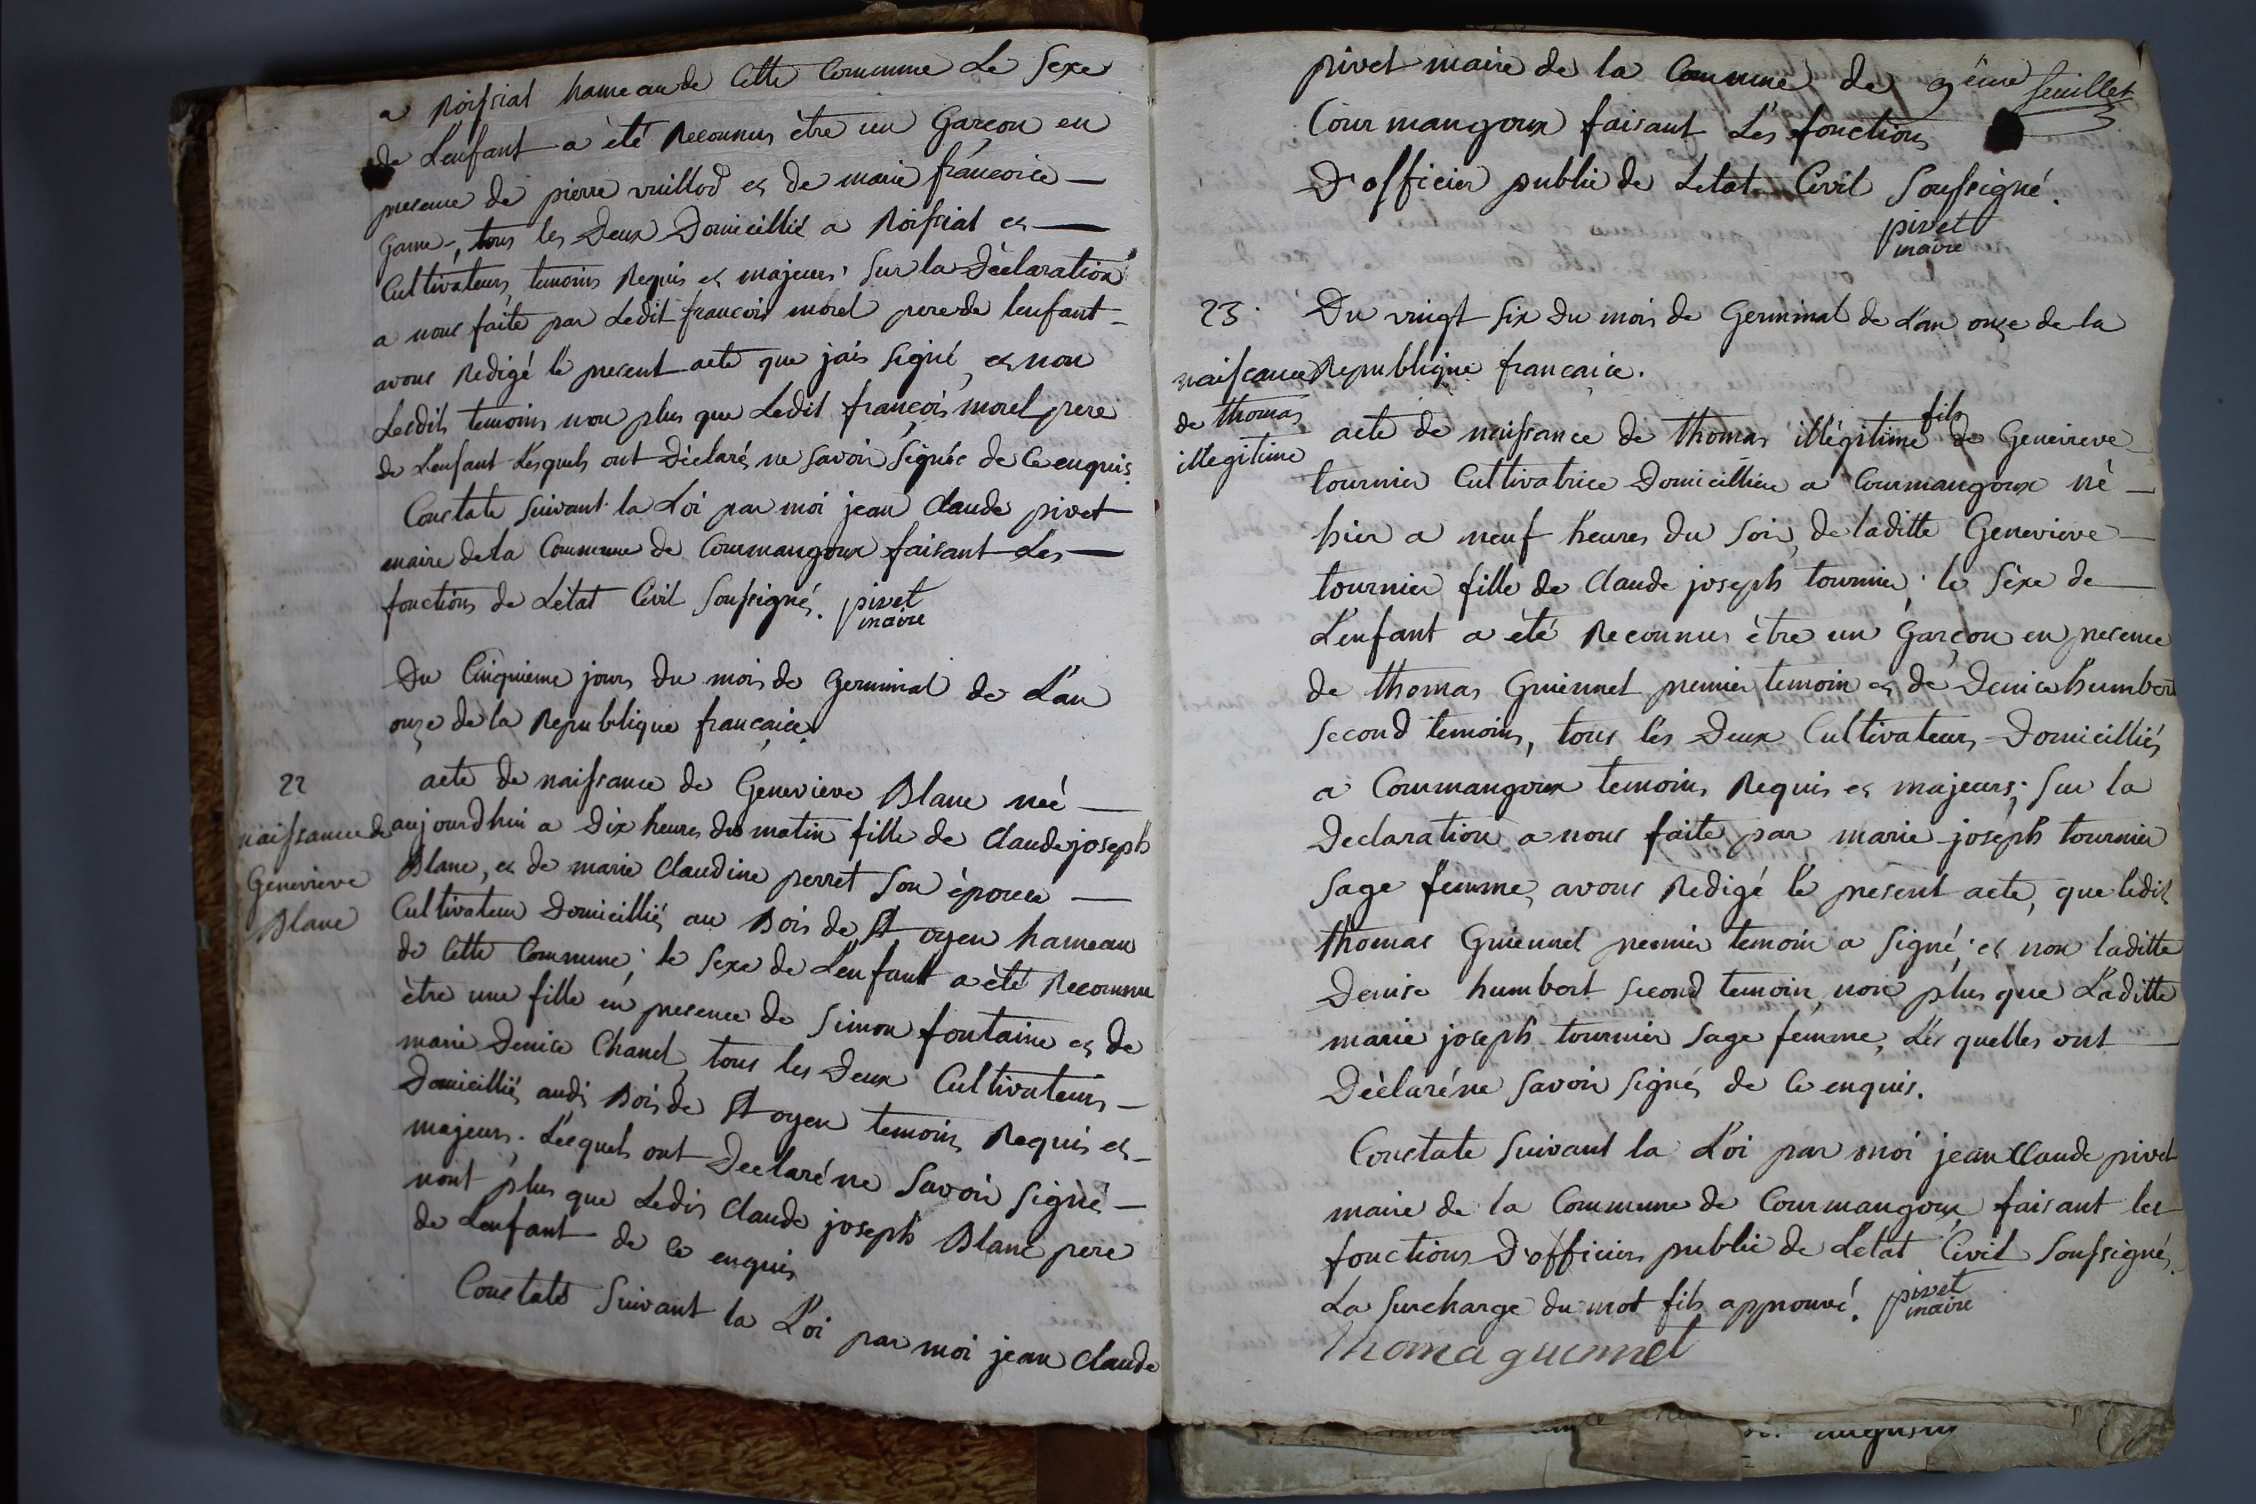 a Roissiat hameau de Cette Commune Le Sexe
de L'enfant a èté Reconnus ètre un Garçon en
presence de pierre vuillod et de marie françoise
Game, tous les Deux Domicilliés a Roissiat et
Cultivateurs, temoins Requis et majeurs; Sur la Dèclaration
a nous faite par Ledit françois morel pere de lenfant
avons Redigé le present acte que jais Signé, et non
Lesdits temoins non plus que Ledit françois morel pere
de L'enfant Lesquels ont Dèclarés ne Savoir Signés de Ce enquis.
Constaté Suivant la Loi par moi jean Claude pivet
maire de la Commune de Courmangoux faisant Les
fonctions de Létat Civil Soussignés. pivet
maire
Du Cinquieme jours du mois de Germinal de L'an
onze de la Republique française.
22
naissance de
Genevieve
Blanc
acte de naissance de Genevieve Blanc neé
aujourdhui a Dix heures du matin fille de Claude joseph
Blanc, et de marie Claudine perret Son èpouse
Cultivateur Domicilliés au Bois de St oyen hameau
de Cette Commune; le Sexe de L'enfant a èté Reconnu
ètre une fille en presence de Simon fontaine et de
marie Denise Chanel, tous les Deux Cultivateurs
Domicilliés audi Bois de St oyen temoins Requis et
majeurs; Lesquels ont Declaré ne Savoir Signé
nont plus que Ledis Claude joseph Blanc pere
de Lenfant de Ce enquis
Constaté Suivant la Loi par moi jean Claude
9ème feuillet
pivet maire de la Commune de
Courmangoux faisant Les fonctions
D'officier public de Letat Civil Soussigné.
pivet
maire
23.
naissance
de thomas
illegitime
Du vingt Six du mois de Germinal de L'an onze de la
Republique française.
fils
acte de naissance de thomas illégitime de Genevieve
tournier Cultivatrice Domicilliée a Courmangoux né
hier a neuf heures du Soir, de laditte Genevieve
tournier fille de Claude joseph tournier; le Sèxe de
L'enfant a èté Reconnus ètre un Garçon en presence
de thomas Guiennet premier temoin et de Denise humbert
Second temoins, tous les Deux Cultivateurs Domicilliés
a Courmangoux temoins Requis et majeurs; Sur la
Declaration a nous faite par marie joseph tournier
Sage femme, avons Redigé le present acte, que ledit
thomas Guiennet premier temoin a Signé; et non laditte
Denise humbert Second temoin, non plus que Laditte
marie joseph tournier Sage femme, Les quelles ont
Dèclaré ne Savoir Signés de Ce enquis.
Constaté Suivant la Loi par moi jean Claude pivet
maire de la Commune de Courmangoux faisant les
fonctions D'officiers public de Létat Civil Soussignés.
La Surcharge du mot fils approuvé. pivet
maire
Thoma guiennet